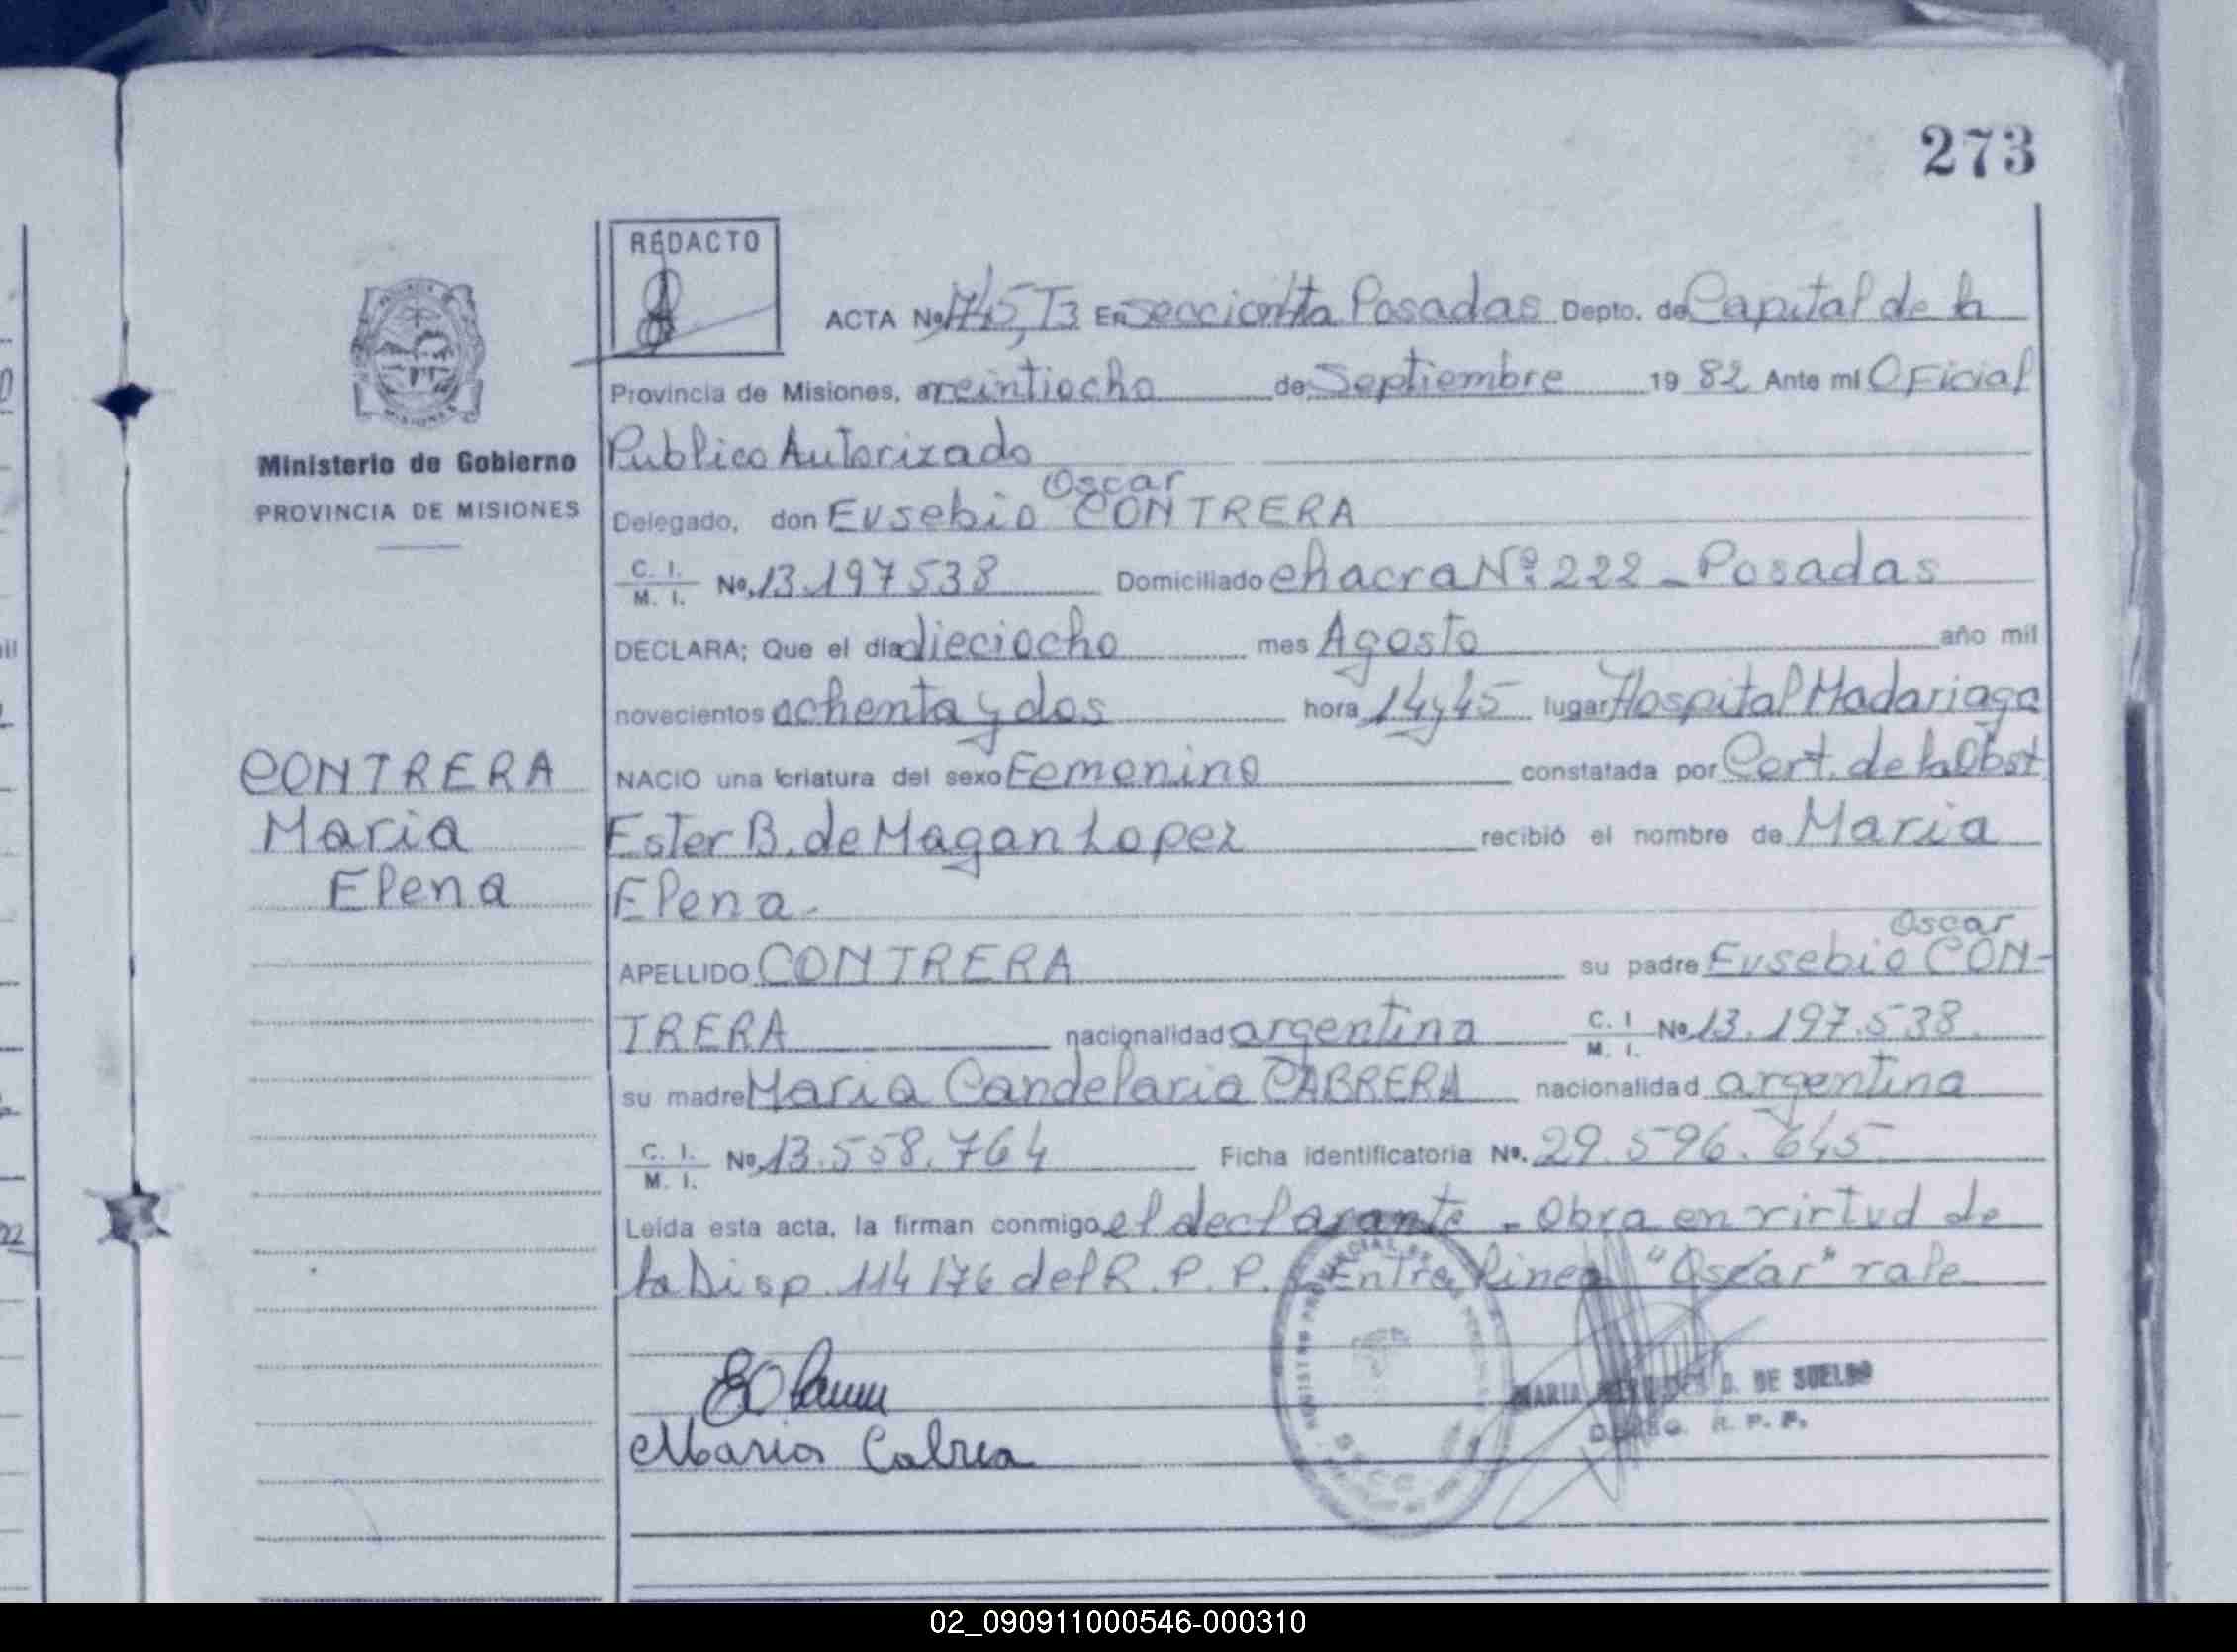 273
REDACTO
ACTA Nº 745, T3 En Seccion 4ta Posadas Depto. de Capital de la
Provincia de Misiones, a veintiocho de Septiembre 1982 Ante mi Oficial
Publico Autorizado
Ministerio de Gobierno
PROVINCIA DE MISIONES
Oscar
Delegado, don Eusebio CONTRERA
C. I. M. I. Nº 13.197538 Domiciliado chacra Nº 222 - Posadas
DECLARA; Que el día dieciocho mes Agosto año mil
novecientos ochenta y dos hora 14 y 45 lugar Hospital Madariaga
NACIO una criatura del sexo Femenino constatada por Cert. de la Obst
Ester B. de Magan Lopez recibió el nombre de Maria
Elena -
CONTRERA
Maria
Elena
Oscar
APELLIDO CONTRERA su padre Eusebio CON-
TRERA nacionalidad argentina C. I M. I. Nº 13.197.538
su madre Maria Candelaria CABRERA nacionalidad argentina
C. I. M. I. Nº 13.558.764 Ficha identificatoria Nº. 29.596.645
Leída esta acta, la firman conmigo el declarante - Obra en virtud de
la Disp. 114/76 del R. P. P. Entre linea "Oscar" vale
MARIA D. DE SUELDO
R. P. P.
Maria Cabrera
02_090911000546-000310